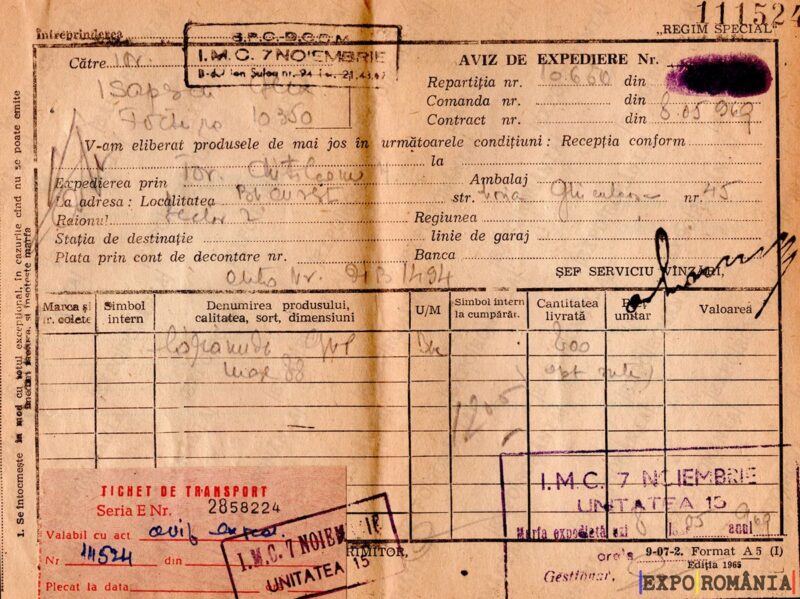 111524
Întreprinderea
„REGIM SPECIAL”
S.P.C.-D.G.D.M.
I.M.C. 7 NOIEMBRIE
B-dul Ion Șulea nr. 94
Către
AVIZ DE EXPEDIERE Nr.
Repartiția nr. 10.660 din
Comanda nr. din
Contract nr. din 8.05 969
10350
V-am eliberat produsele de mai jos în următoarele condițiuni : Recepția conform
la
Expedierea prin Tov. Ambalaj
La adresa : Localitatea str. nr. 45
Raionul Sector 2 Regiunea
Stația de destinație linie de garaj
Plata prin cont de decontare nr. Banca
Auto Nr. 1494
ȘEF SERVICIU VÎNZĂRI,
Marca și nr. colete
Simbol intern
Denumirea produsului, calitatea, sort, dimensiuni
U/M
Simbol intern la cumpărăt.
Cantitatea livrată
Preț unitar
Valoarea
800
opt sute
TICHET DE TRANSPORT
Seria E Nr. 2858224
Valabil cu act aviz exped.
Nr 111524 din
Plecat la data
I.M.C. 7 NOIEMBRIE
UNITATEA 15
PRIMITOR,
I.M.C. 7 NOIEMBRIE
UNITATEA 15
Marfa expediată azi 8 l. 05 anul 969
ora
Gestionar,
9-07-2. Format A 5 (I)
Ediția 1965
1. Se întocmește în mod cu totul excepțional, în cazurile cînd nu se poate emite
EXPO ROMÂNIA